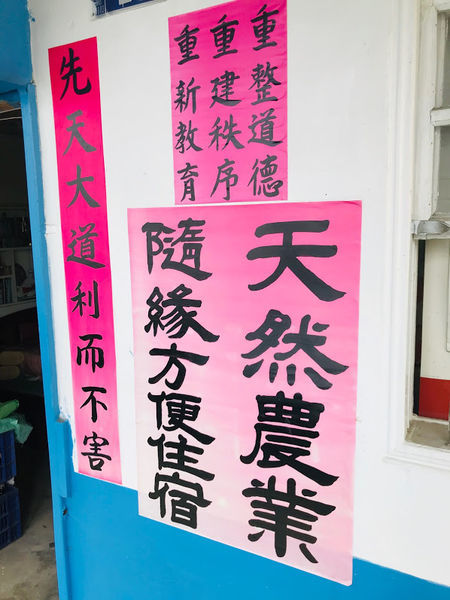 重整道德
重建秩序
重新教育
天然農業
隨緣方便住宿
先天大道利而不害